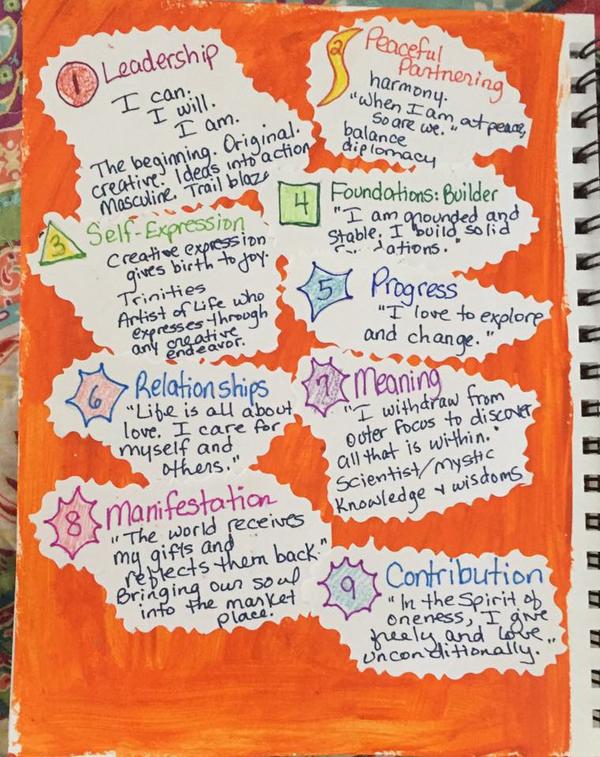 1 Leadership
I can.
I will.
I am.
The beginning. Original.
creative. Ideas into action
Masculine. Trail blaze
2 Peaceful
Partnering
harmony.
"When I am at peace,
so are we."
balance
diplomacy
3 Self-Expression
Creative expression
gives birth to joy.
Trinities
Artist of Life who
expresses through
any creative
endeavor.
4 Foundations: Builder
"I am grounded and
Stable. I build solid
dations."
5 Progress
"I love to explore
and change."
6 Relationships
"Life is all about
love. I care for
myself and
others."
7 Meaning
"I withdraw from
outer focus to discover
all that is within."
Scientist/mystic
Knowledge & wisdoms
8 Manifestation
"The world receives
my gifts and
reflects them back."
Bringing our soul
into the market
place.
9 Contribution
"In the Spirit of
oneness, I give
freely and love
unconditionally."